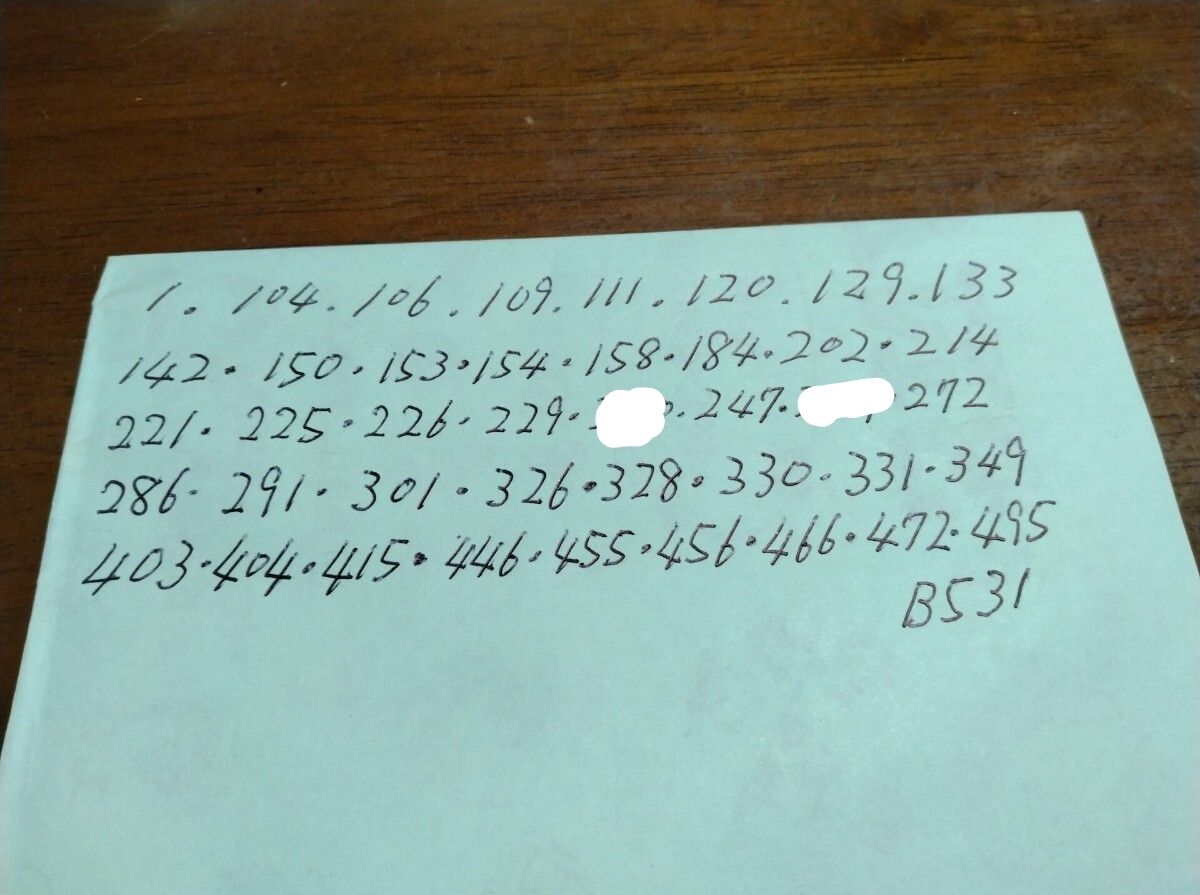 1. 104. 106. 109. 111. 120. 129. 133
142. 150. 153. 154. 158. 184. 202. 214
221. 225. 226. 229. 247. 272
286. 291. 301. 326. 328. 330. 331. 349
403. 404. 415. 446. 455. 456. 466. 472. 495
B531